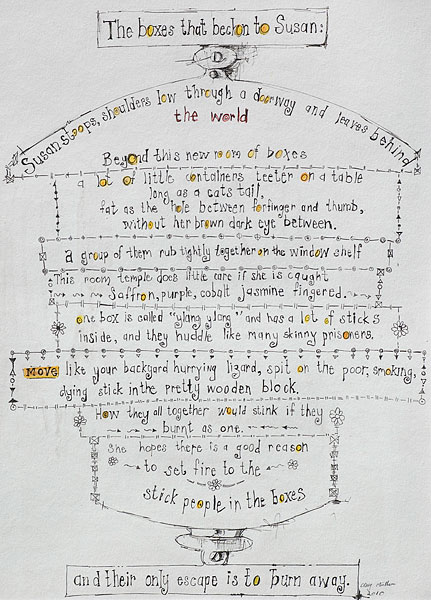 The boxes that beckon to Susan:
D
Susan stoops, shoulders low through a doorway and leaves behind
the world
Beyond this new room of boxes
a lot of little containers teeter on a table
long as a cats tail,
fat as the hole between forfinger and thumb,
without her brown dark eye between.
a group of them rub tightly together on the window shelf
This room temple does little care if she is caught
Saffron, purple, cobalt Jasmine fingered.
one box is called "ylang ylang" and has a lot of sticks
inside, and they huddle like many skinny prisoners.
Move like your backyard hurrying lizard, spit on the poor, smoking,
dying stick in the pretty wooden block.
How they all together would stink if they
burnt as one.
She hopes there is a good reason
to set fire to the
stick people in the boxes
and their only escape is to burn away.
2010